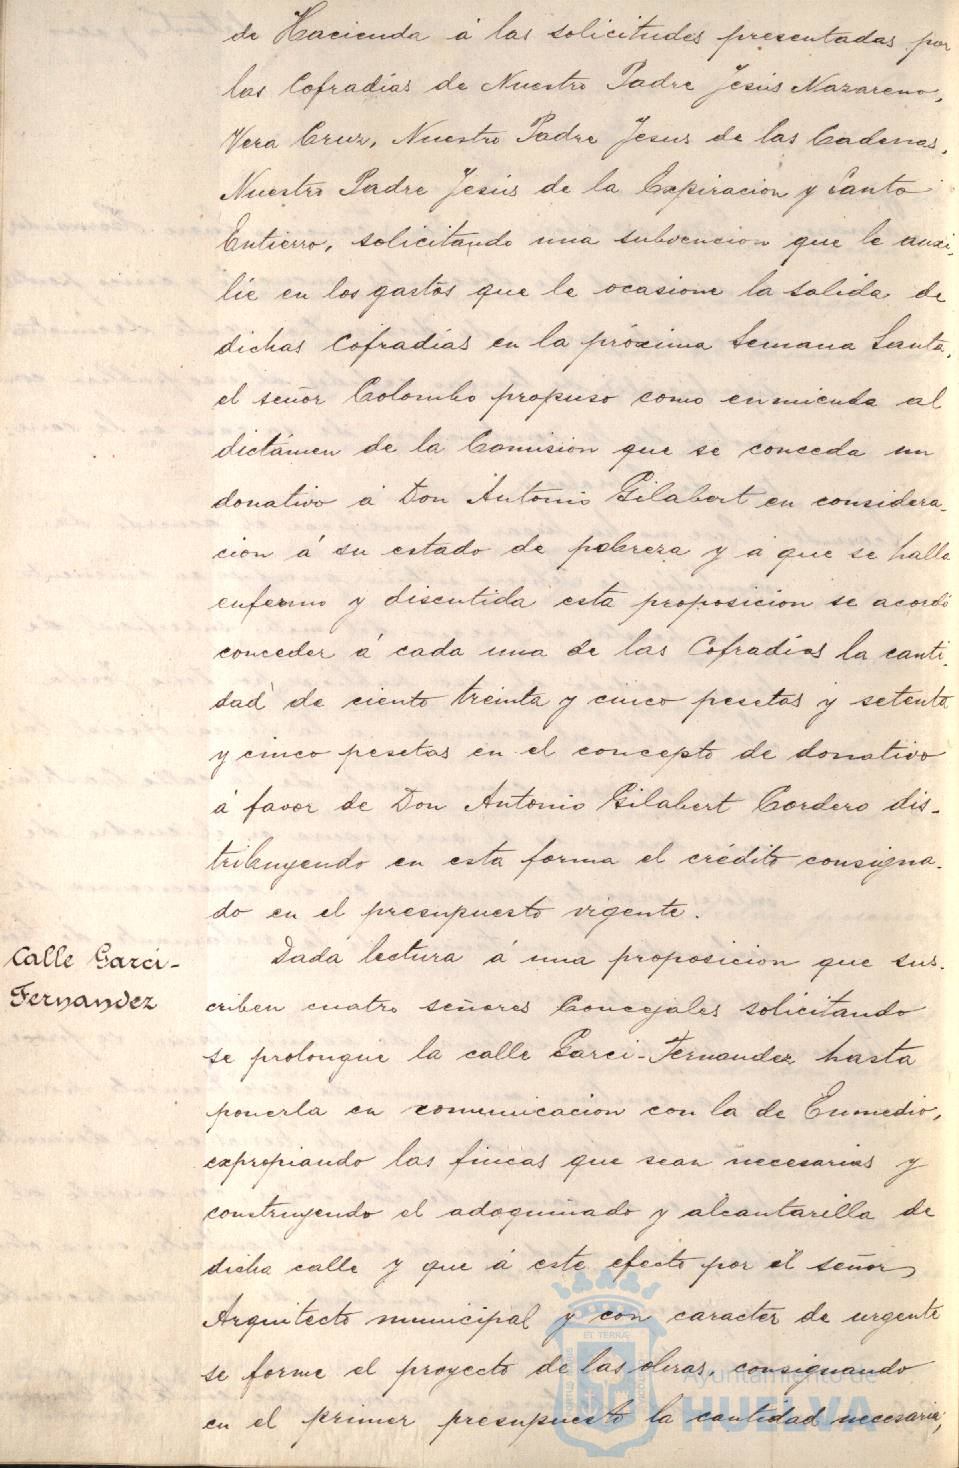 de Hacienda á las solicitudes presentadas por
las Cofradías de Nuestro Padre Jesús Nazareno,
Vera Cruz, Nuestro Padre Jesus de las Cadenas,
Nuestro Padre Jesús de la Expiración y Santo
Entierro, solicitando una subvencion que le auxi-
lie en los gastos que le ocasione la salida de
dichas Cofradías en la próxima Semana Santa,
el señor Colombo propuso como enmienda al
dictámen de la Comisión que se conceda un
donativo á Don Antonio Gilabert en considera-
cion á su estado de pobreza y á que se halla
enfermo y discutida esta proposicion se acordó
conceder á cada una de las Cofradías la canti-
dad de ciento treinta y cinco pesetas y setenta
y cinco pesetas en el concepto de donativo
á favor de Don Antonio Gilabert Cordero dis-
tribuyendo en esta forma el crédito consigna-
do en el presupuesto vigente.
Calle Garci-
Fernandez
Dada lectura á una proposicion que sus-
criben cuatro señores Concejales solicitando
se prolongue la calle Garci-Fernandez hasta
ponerla en comunicacion con la de Enmedio,
expropiando las fincas que sean necesarias y
construyendo el adoquinado y alcantarilla de
dicha calle y que á este efecto por el señor
Arquitecto municipal y con caracter de urgente
se forme el proyecto de las obras, consignando
en el primer presupuesto la cantidad necesaria,
ET TERRÆ
Ayuntamiento de
HUELVA